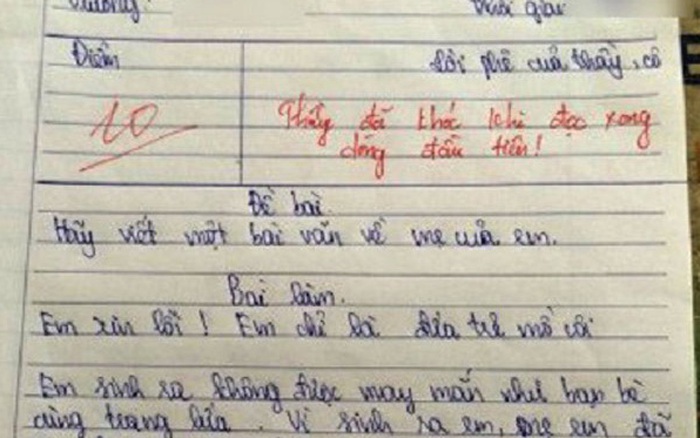 Trường: Thời gian
Điểm Lời phê của thầy, cô
10 Thầy đã khóc khi đọc xong
dòng đầu tiên!
Đề bài
Hãy viết một bài văn về mẹ của em.
Bài làm.
Em xin lỗi! Em chỉ là đứa trẻ mồ côi
Em sinh ra không được may mắn như bạn bè
cùng trang lứa. Vì sinh ra em, mẹ em đã